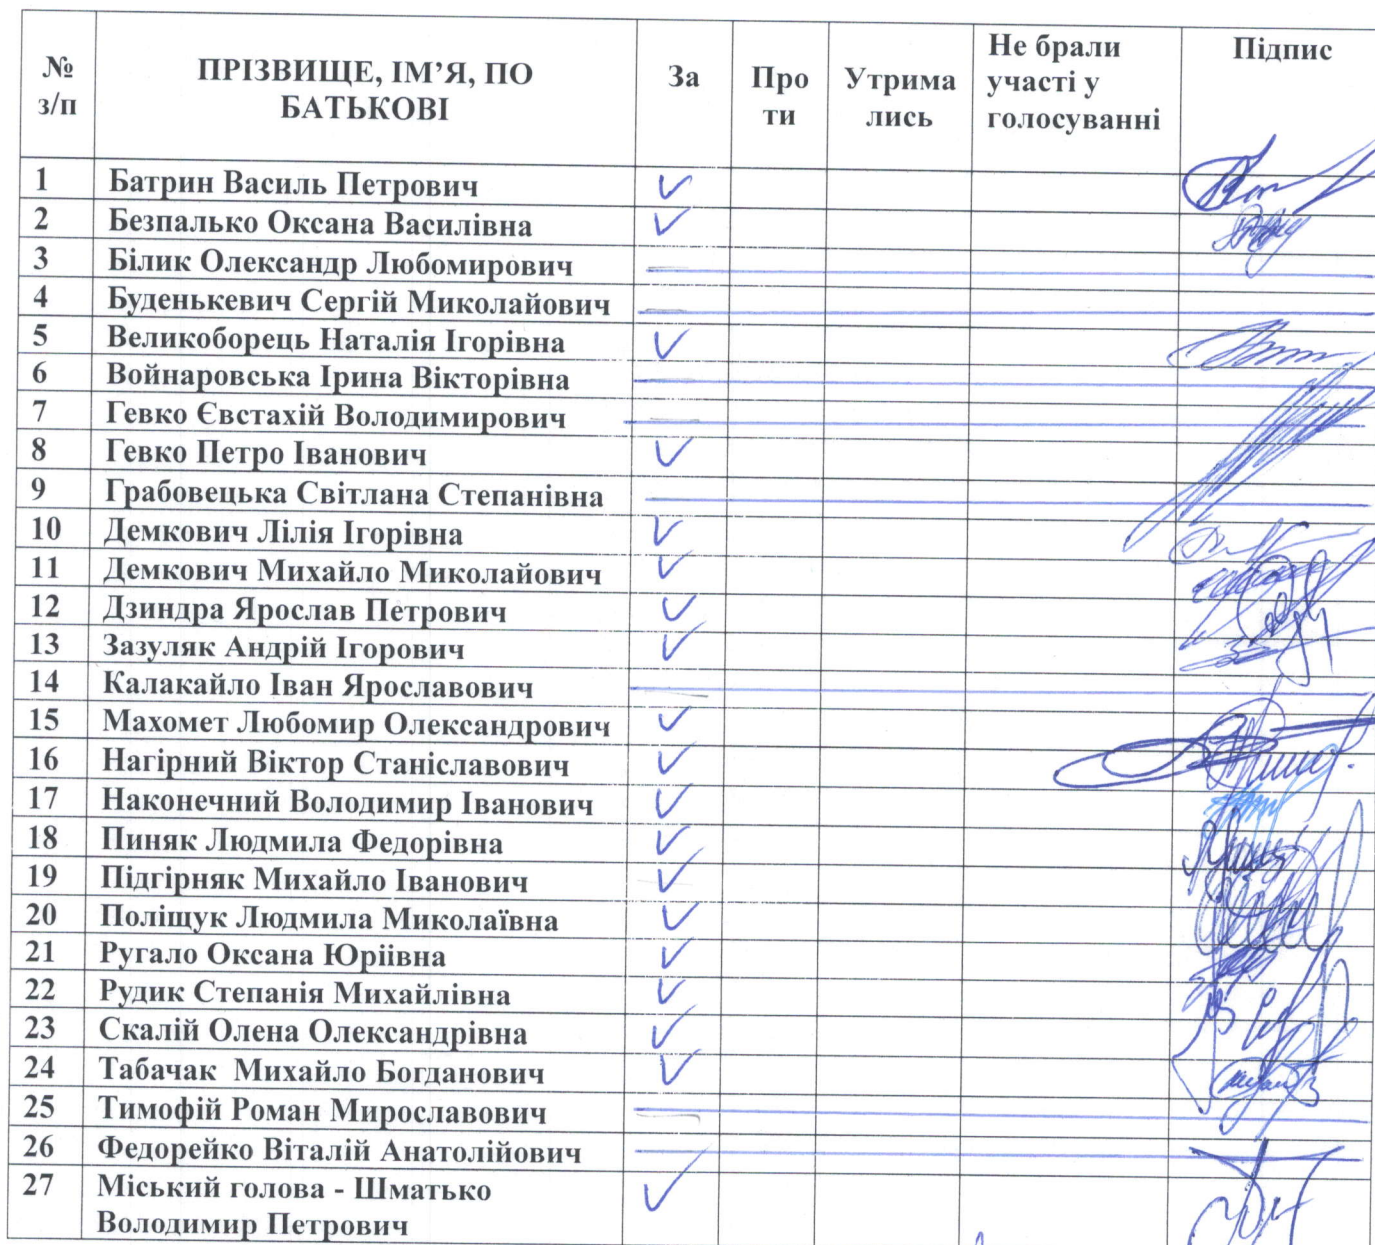 № з/п ПРІЗВИЩЕ, ІМ’Я, ПО БАТЬКОВІ За Про ти Утрима лись Не брали участі у голосуванні Підпис
1 Батрин Василь Петрович ✓
2 Безпалько Оксана Василівна ✓
3 Білик Олександр Любомирович
4 Буденькевич Сергій Миколайович
5 Великоборець Наталія Ігорівна ✓
6 Войнаровська Ірина Вікторівна
7 Гевко Євстахій Володимирович
8 Гевко Петро Іванович ✓
9 Грабовецька Світлана Степанівна
10 Демкович Лілія Ігорівна ✓
11 Демкович Михайло Миколайович ✓
12 Дзиндра Ярослав Петрович ✓
13 Зазуляк Андрій Ігорович ✓
14 Калакайло Іван Ярославович
15 Махомет Любомир Олександрович ✓
16 Нагірний Віктор Станіславович ✓
17 Наконечний Володимир Іванович ✓
18 Пиняк Людмила Федорівна ✓
19 Підгірняк Михайло Іванович ✓
20 Поліщук Людмила Миколаївна ✓
21 Ругало Оксана Юріївна ✓
22 Рудик Степанія Михайлівна ✓
23 Скалій Олена Олександрівна ✓
24 Табачак Михайло Богданович ✓
25 Тимофій Роман Мирославович
26 Федорейко Віталій Анатолійович
27 Міський голова - Шматько ✓
Володимир Петрович